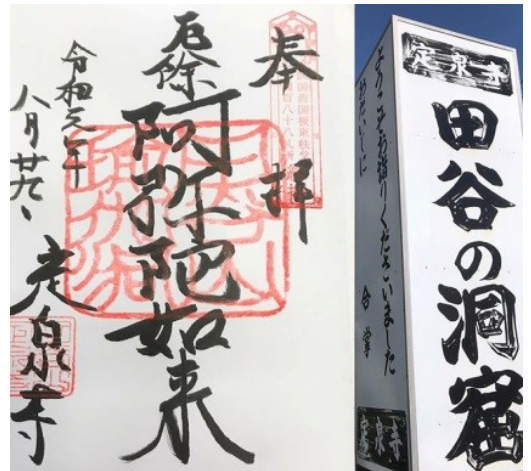 奉拝
厄除
阿弥陀如来
令和元年
八月廿九日
定泉寺
定泉寺
田谷の洞窟
ようこそお詣りくださいました
おだいじに
合掌
定泉寺